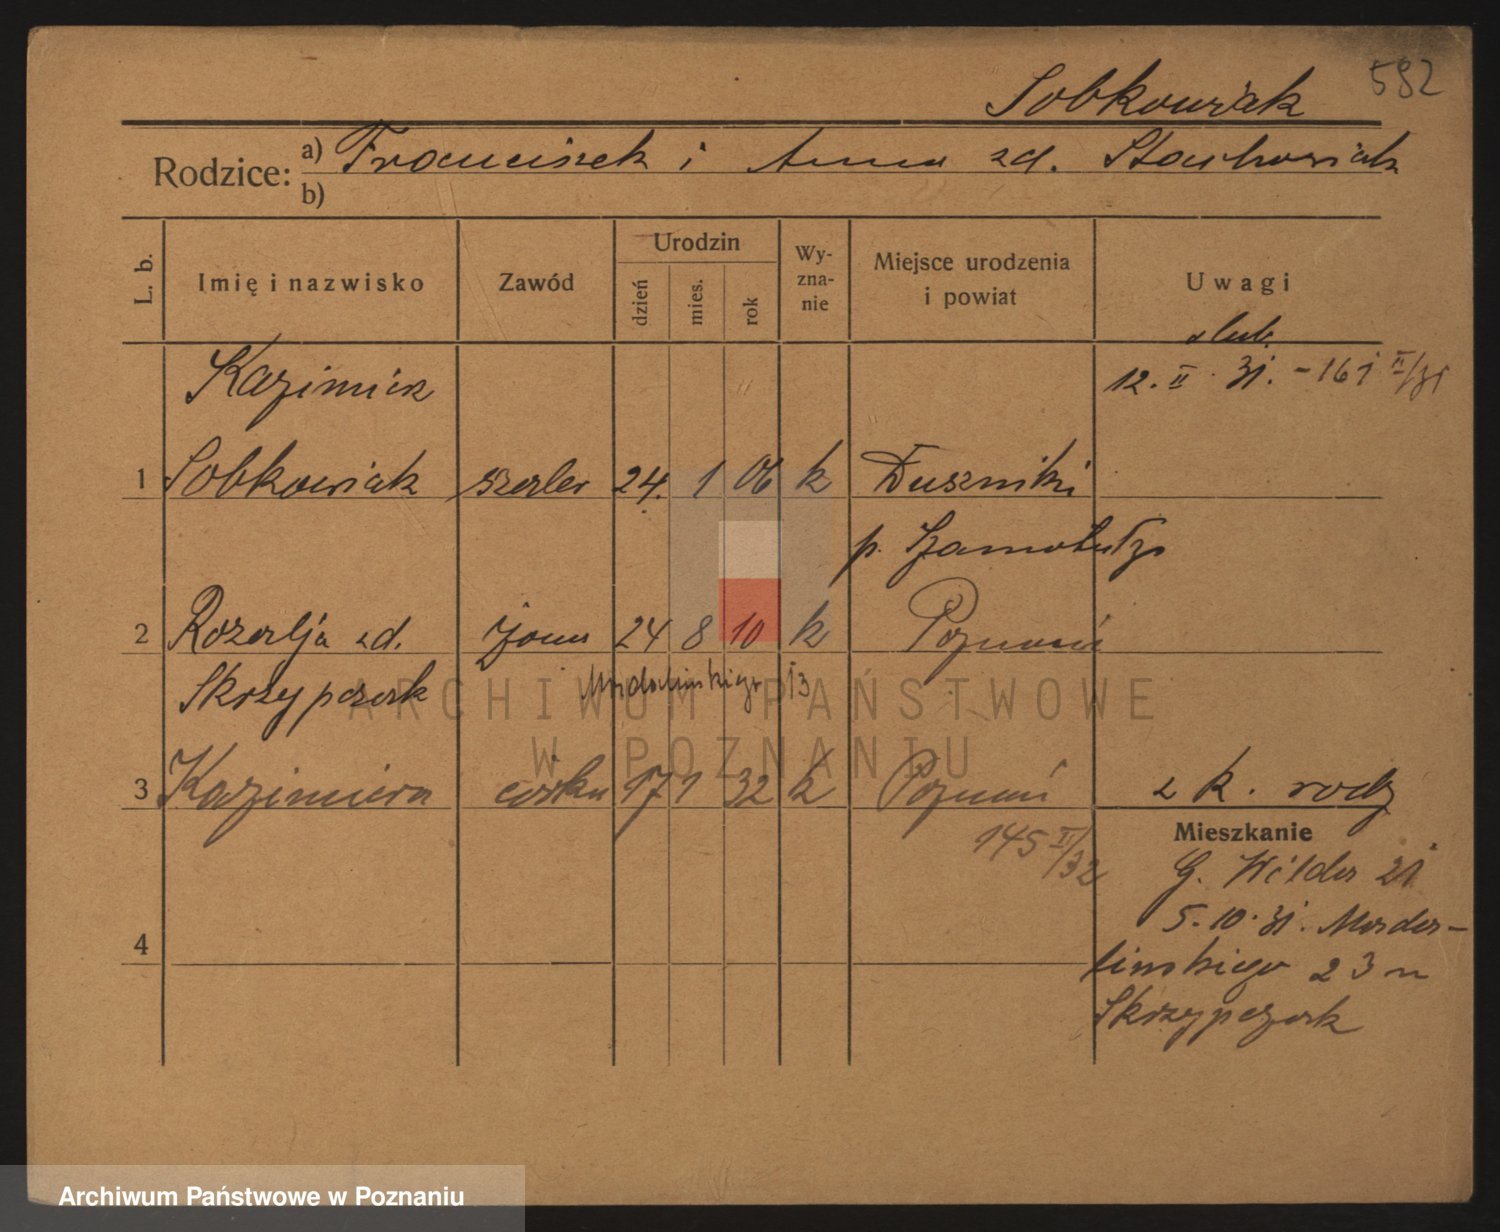 592
Sobkowiak
Rodzice: a) Franciszek i Anna zd. Stachowiak
b)
L. b. Imię i nazwisko Zawód Urodzin dzień mies. rok Wyznanie Miejsce urodzenia i powiat Uwagi
ślub.
Kazimierz 12. II. 31. - 161 II/31
1 Sobkowiak szofer 24. 1 06 k Duszniki
p. Szamotuły
2 Rozalja zd. żona 24 8 10 k Poznań
Skrzypczak Madalińskiego 13
3 Kazimiera córka 17 1 32 k Poznań z k. rodz
145 II/32
Mieszkanie
G. Wilda 21
4 5.10.31. Mada-
lińskiego 23 u
Skrzypczak
ARCHIWUM PAŃSTWOWE
W POZNANIU
Archiwum Państwowe w Poznaniu